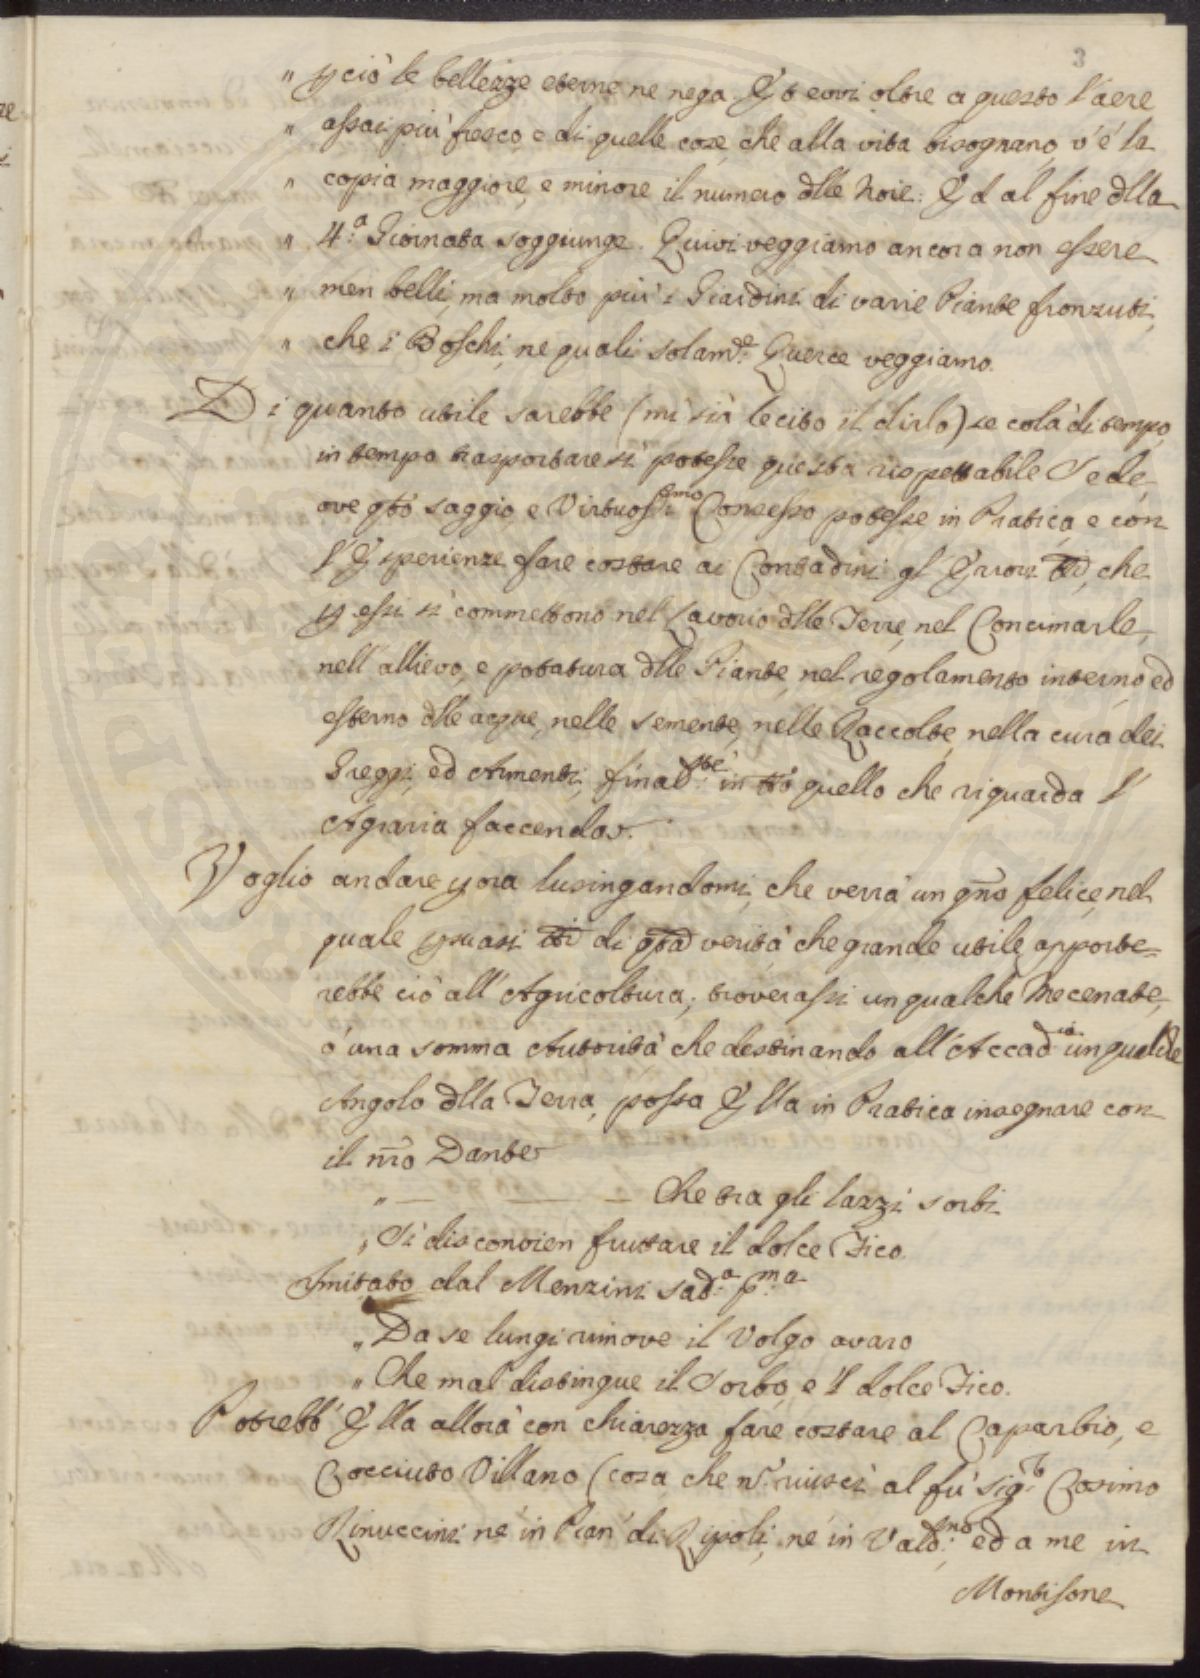 3
" p ciò le bellezze eterne ne nega. Et evvi oltre a questo l'aere
" assai più fresco, e di quelle cose, che alla vita bisognano, v'è la
" copia maggiore, e minore il numero dlle Noie: Ed al fine dlla
" 4.a Giornata soggiunge. Quivi veggiamo ancora non essere
" men belli, ma molto più i Giardini di varie Piante fronzuti,
" che i Boschi, ne quali solam.e Querce veggiamo.
Di quanto utile sarebbe (mi sia lecito il dirlo) se colà di tempo
in tempo trasportare si potesse questa rispettabile Sede,
ove qto saggio, e Virtuosissimo Consesso potesse in Pratica, e con
l'Esperienze fare costare ai Contadini gl'Errori tti, che
p essi si commettono nel Lavorio dlle Terre, nel Concimarle,
nell'allievo, e potatura dlle Piante, nel regolamento interno, ed
esterno dlle acque, nelle semente, nelle Raccolte, nella cura dei
Greggi, ed Armenti, final.te in tto quello che riguarda l'
Agraria faccenda.
Voglio andare p ora lusingandomi, che verrà un gno felice, nel
quale psuasi tti di qta verità che grande utile apporte=
rebbe ciò all'Agricoltura, troverassi un qualche Mecenate,
ò una somma Autorità che destinando all'Accad.ia un qualche
Angolo dlla Terra, possa Ella in Pratica insegnare con
il nro Dante
" — — — Che tra gli lazzi sorbi
" Si disconvien fruttare il dolce Fico.
Imitato dal Menzini Sad.a p.ma
" Da se lungi rimove il Volgo avaro
" Che mal distingue il Sorbo, e 'l dolce Fico.
Potrebb' Ella allora con chiarezza fare costare al Caparbio, e
Cocciuto Villano (cosa che n. riuscì al fù Sig.r Cosimo
Rinuccini nè in Pian di Ripoli, nè in Vald.no, ed a me in
Montisone